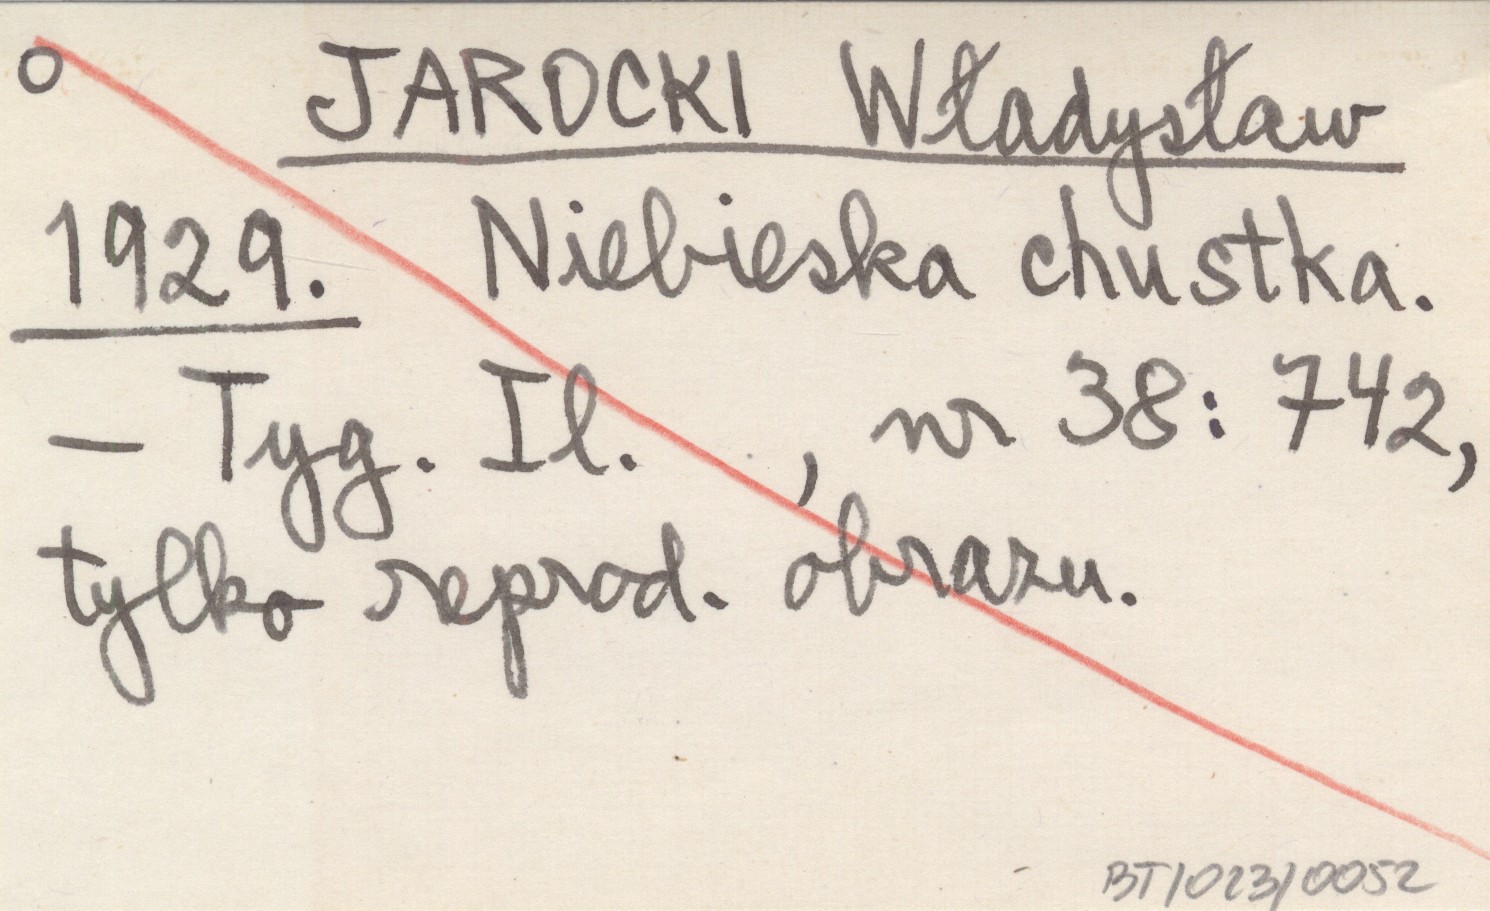 o JAROCKI Władysław
1929. Niebieska chustka.
– Tyg. Il. , nr 38: 742,
tylko reprod. obrazu.
BT/023/0052